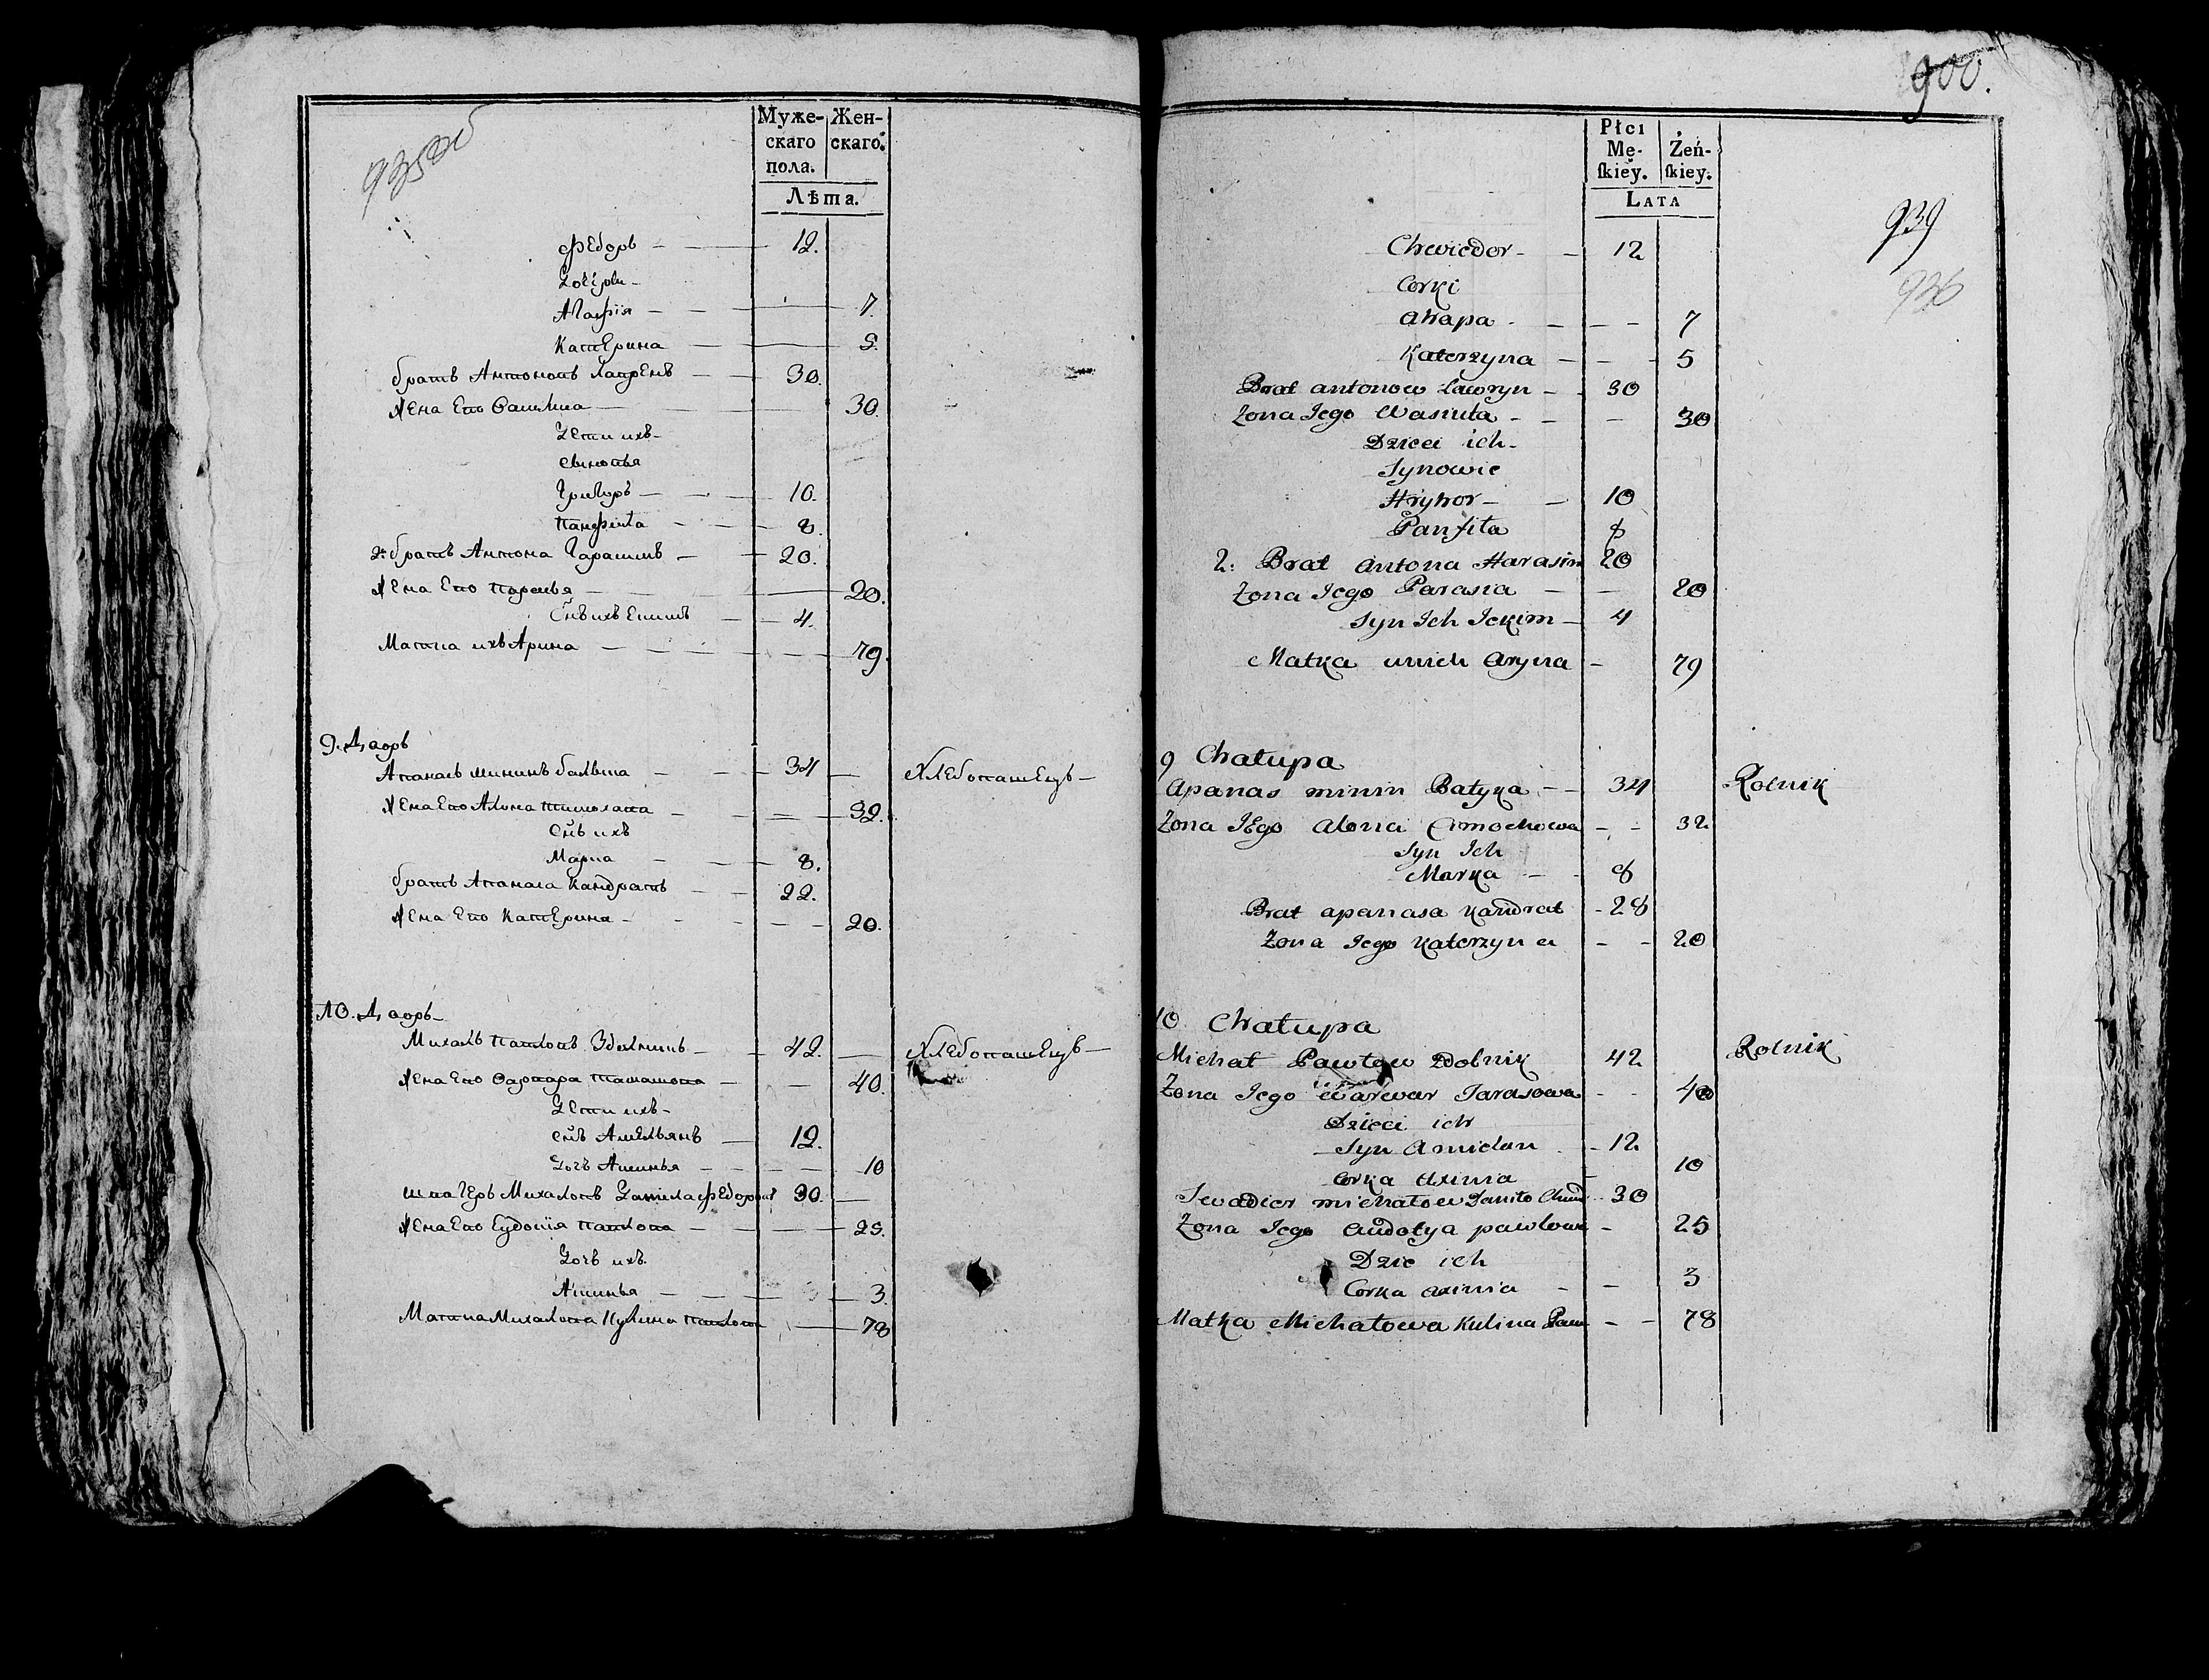 935об
Муже-
скаго
пола.
Жен-
скаго.
Лѣта.
Ѳедоръ — 12.
Дочери
Агафія — 7.
Катерина — 5.
братъ Антоновъ Лавренъ — 30.
Жена Его Васюта — 30.
Дети ихъ
Сыновья
Григоръ — 10.
Панфила — 8.
2: братъ Антона Гарасимъ — 20.
Жена Его Парасья — 20.
Снъ ихъ Екимъ — 4.
Матка ихъ Арина — 79.
9. Дворъ
Апанасъ мининъ — 34 — Хлебопашецъ —
Жена Его Алона — 32.
Снъ ихъ
Марка — 8.
братъ Апанаса Кандратъ — 22.
Жена Его Катерина — 20.
10. Дворъ
Михалъ Павловъ Здольникъ — 42. — Хлебопашецъ —
Жена Его Варвара — 40.
Дети ихъ
снъ Амельянъ — 12.
Дочъ Аксинья — 10
швагеръ Михаловъ Данила Федоровъ 30. —
Жена Его Евдокія Павлова — 25.
Дочъ ихъ
Аксинья — 3.
Матка Михалова Кулина Павлова — 78
900.
Płci
Mę-
skiey.
Żeń-
skiey.
LATA
939
936
Chwiedor — 12
Corki
Ahapa — 7
Katerzyna — 5
Brat antonow Ławryn — 30
Zona Jego Wasiuta — 30
Dzieci ich
Synowie
Hryhor — 10
Panfiła 8
2: Brat Antona Harasim 20
Zona Jego Parasia — 20
Syn Ich Jekim — 4
Matka unich Aryna — 79
9 Chałupa
Apanas minin Bałyka — 34 Rolnik
Zona JEgo Alona Cimochowa — 32
Syn Ich
Marka — 8
Brat apanasa Kandrat — 28
Zona Jego Katerzyna — 20
10 Chałupa
Michał Pawłow Zdolnik 42 Rolnik
Zona Jego Warwar Tarasowa — 40
Dzieci ich
Syn Amielan — 12
Corka Axinia — 10
Swadier michałow Daniło Chwied 30
Zona Jego Audotya pawłowa — 25
Dzie ich
Corka axinia — 3
Matka Michałowa Kulina Paw — 78